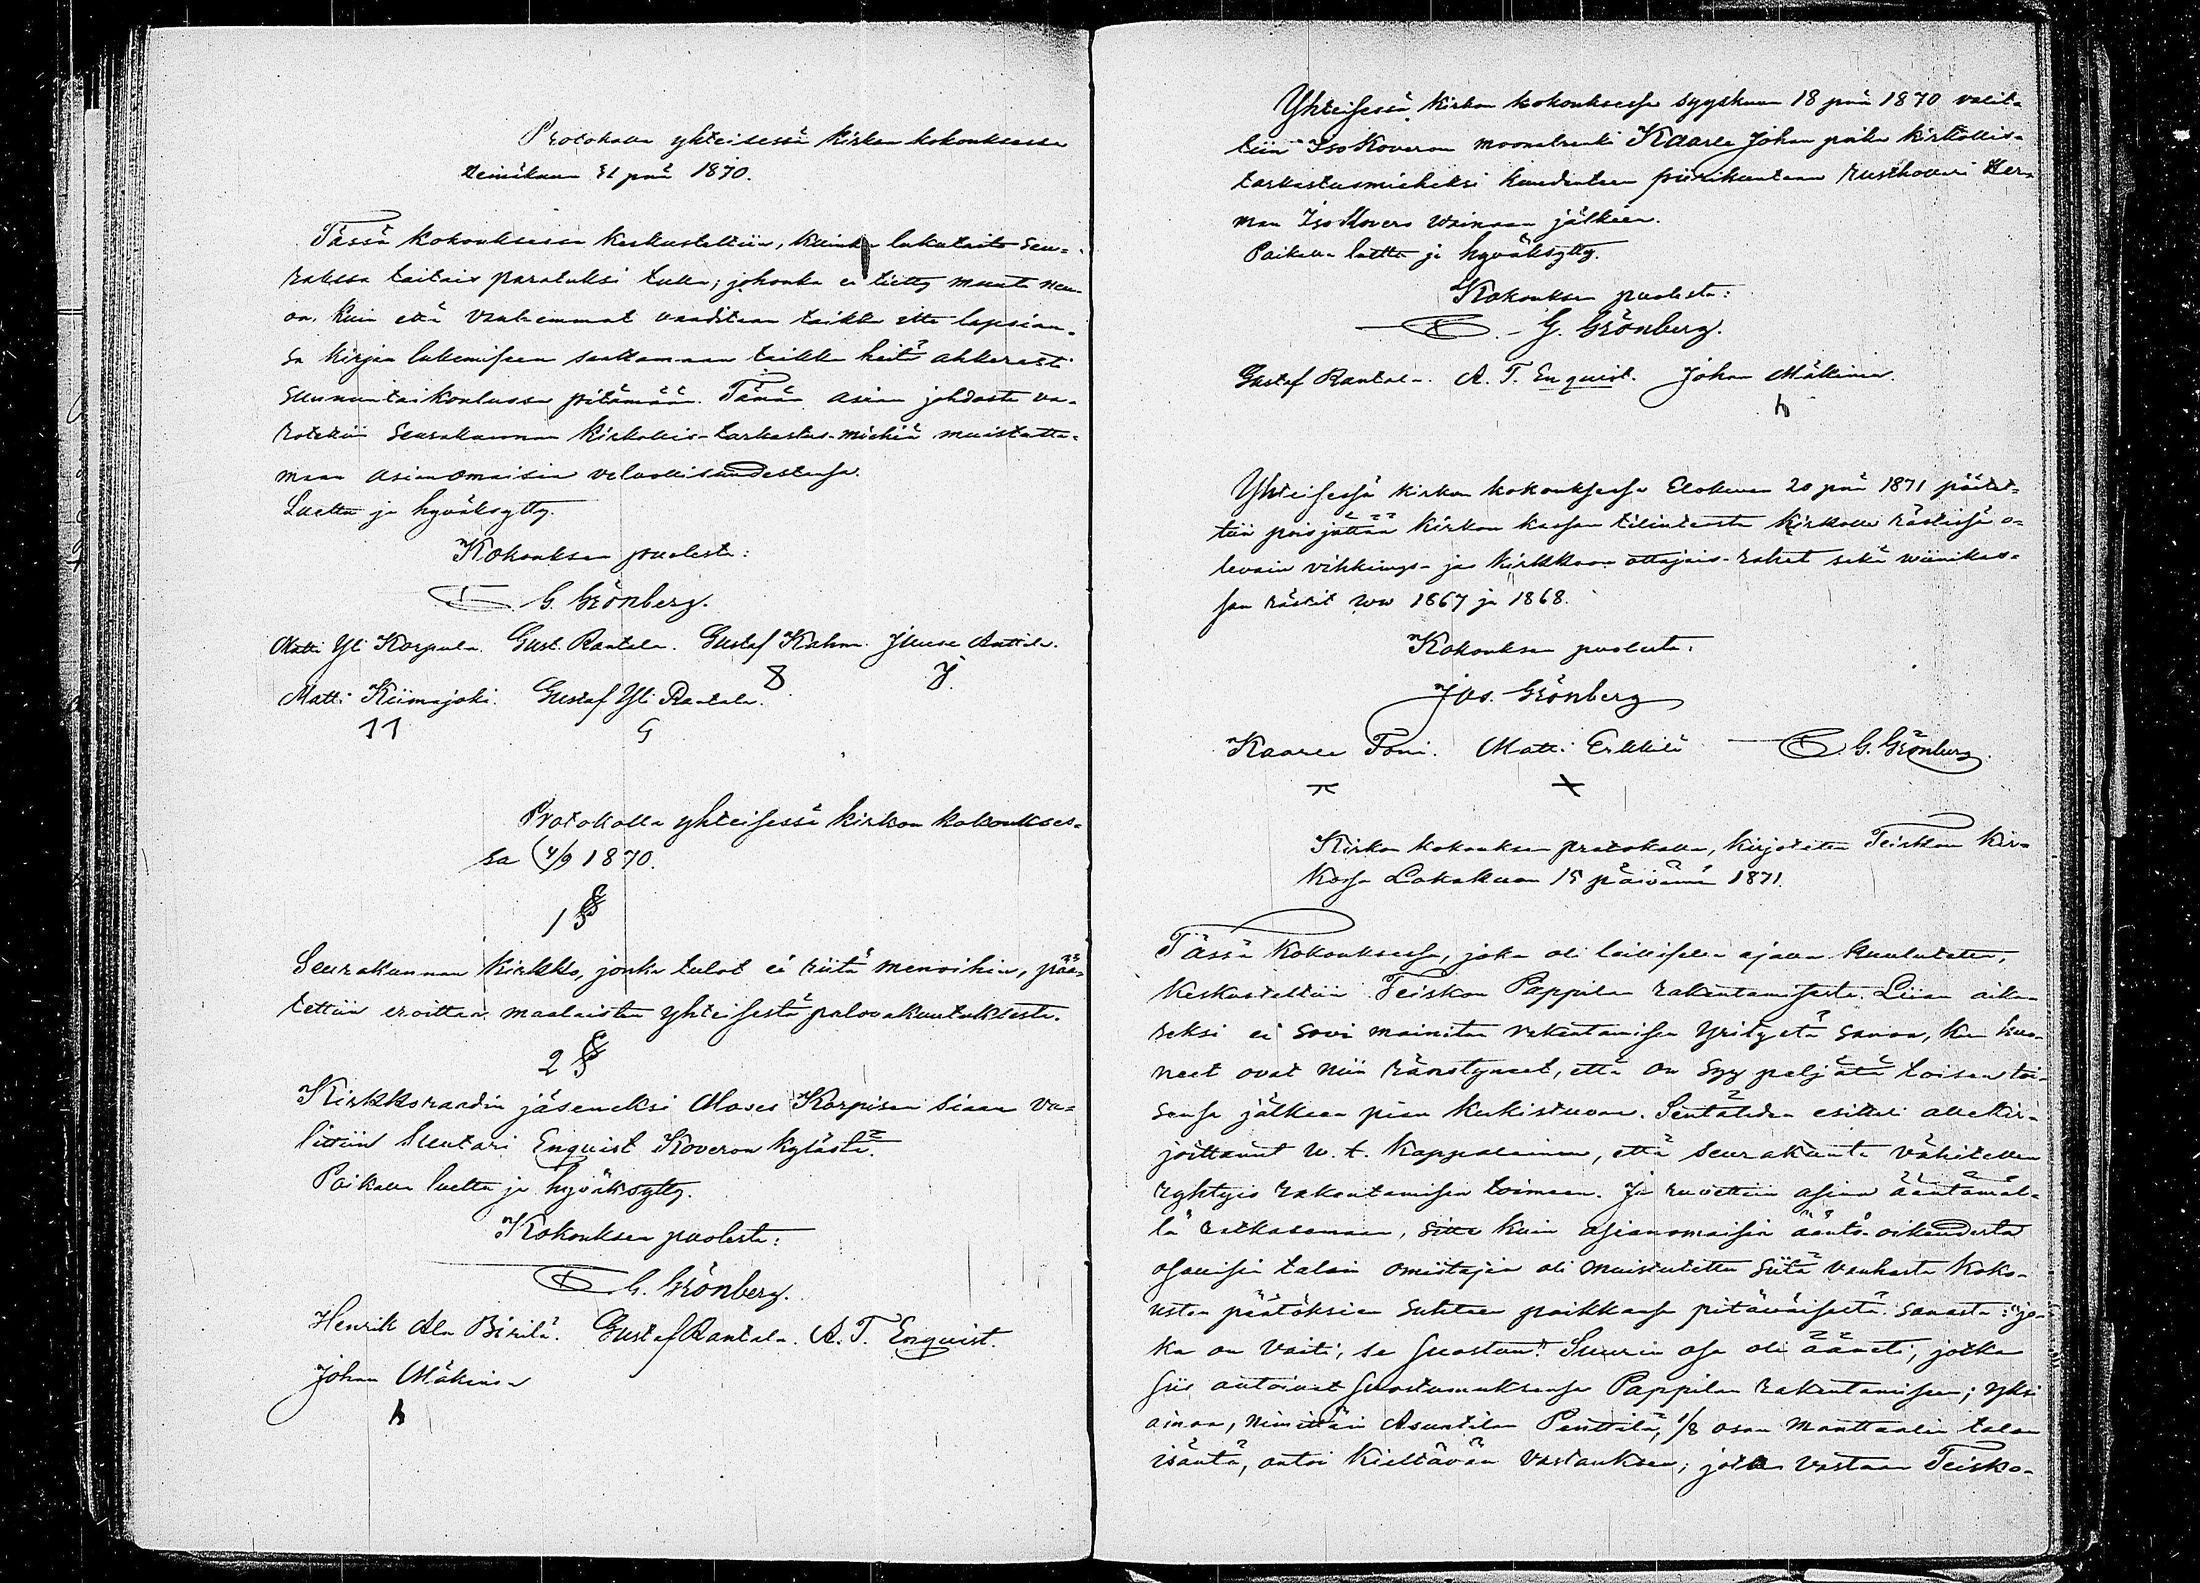 Protokolla yhteisessä kirkon kokouksessa
Heinäkuun 31 pnä 1870.
Tässä kokouksessa keskusteltiin, kuinka lukutaito seu-
rakssa taitais paratuksi tulla; johonka ei tietty muuta neu-
oa, kuin että vanhemmat vaaditaan taikka itte lapsian-
sa kirjan lukemiseen saattamaan taikka heitä ahkerasti
sunnuntaikoulussa pitämään. Tämän asian johdosta va-
rotettiin seurakunnan kirkollis-tarkastus-miehiä muistutta-
maan asianomaisia velvollisuudestansa.
Luettu ja hyväksytty.
Kokouksen puolesta:
G. Grönberg.
Matti Yli Korpula. Gust. Rantala. Gustaf Kahra. Juuse Anttila.
Matti Kiimajoki. Gustaf Yli Rantala.
11 G
Protokolla yhteisessä kirkon kokoukses-
sa (4/9 1870.
1 §
Seurakunnan kirkko, jonka tulot ei riitä menoihin, pää-
tettiin eroittaa maalaisten yhteisestä palovakuutuksesta.
2 §
Kirkkoraadin jäseneksi Moses Karpisen siaan va-
littiin Suutari Enquist Koveron kylästä.
Paikalla luettu ja hyväksytty.
Kokouksen puolesta:
G. Grönberg.
Henrik Ala Birilä. Gustaf Rantala. A. T. Enquist.
Johan Mäkinen
h
Yhteisessä kirkon kokouksessa syyskuun 18 pnä 1870 valit-
tiin Iso Koveron moonalrenki Kaarle Johan poika kirkollis-
tarkastusmieheksi kuudenteen piirikuntaan rusthollari Her-
man Iso Kovero wainaan jälkeen.
Paikalla luettu ja hyväksytty.
Kokouksen puolesta:
G. Grönberg.
Gustaf Rantala. A. T. Enquist. Johan Mäkinen.
h
Yhteisessä kirkon kokouksessa Elokuun 20 pnä 1871 päätet-
tiin poisjättää kirkon kassan tilinteosta kirkolle rästissä o-
levain vihkimys- ja kirkkoon ottajais-rahat sekä wiinikas-
san rästit ww 1867 ja 1868.
Kokouksen puolesta:
Jos. Grönberg
Kaarle Toni. Matti Erkkilä G. Grönberg.
Kirkon kokouksen protokolla, kirjoitettu Teiskon Kir-
kossa Lokakuun 15 päivänä 1871.
Tässä kokouksessa, joka oli laillisella ajalla kuulutettu,
keskusteltiin Teiskon Pappilan rakentamisesta. Liian aika-
seksi ei sovi mainitun rakentamisen yritystä sanoa, kun huo-
neet ovat niin ränstyneet, että on syy peljätä toisen toi-
sensa jälkeen pian kukistuvan. Sentähden esitteli allekir-
joittanut w. t. Kappalainen, että seurakunta vähitellen
ryhtyis rakentamisen toimeen. Ja ruvettiin asiaa ääntämäl-
lä ratkasemaan, sitte kuin asianomaisia ääntö-oikeudesta
osallisia talon omistajia oli muistutettu siitä vanhasta koko-
usten päätöksien suhteen paikkansa pitäväisestä sanasta: "jo-
ka on vaiti, se suostuu". Suurin osa oli ääneti, jotka
siis antoivat suostumuksensa Pappilan rakentamiseen; yksi
ainoa, nimittäin Asuntilan Penttilän, 1/8 osan manttaalin talon
isäntä, antoi kieltävän vastauksen; jota vastaan Teisko-